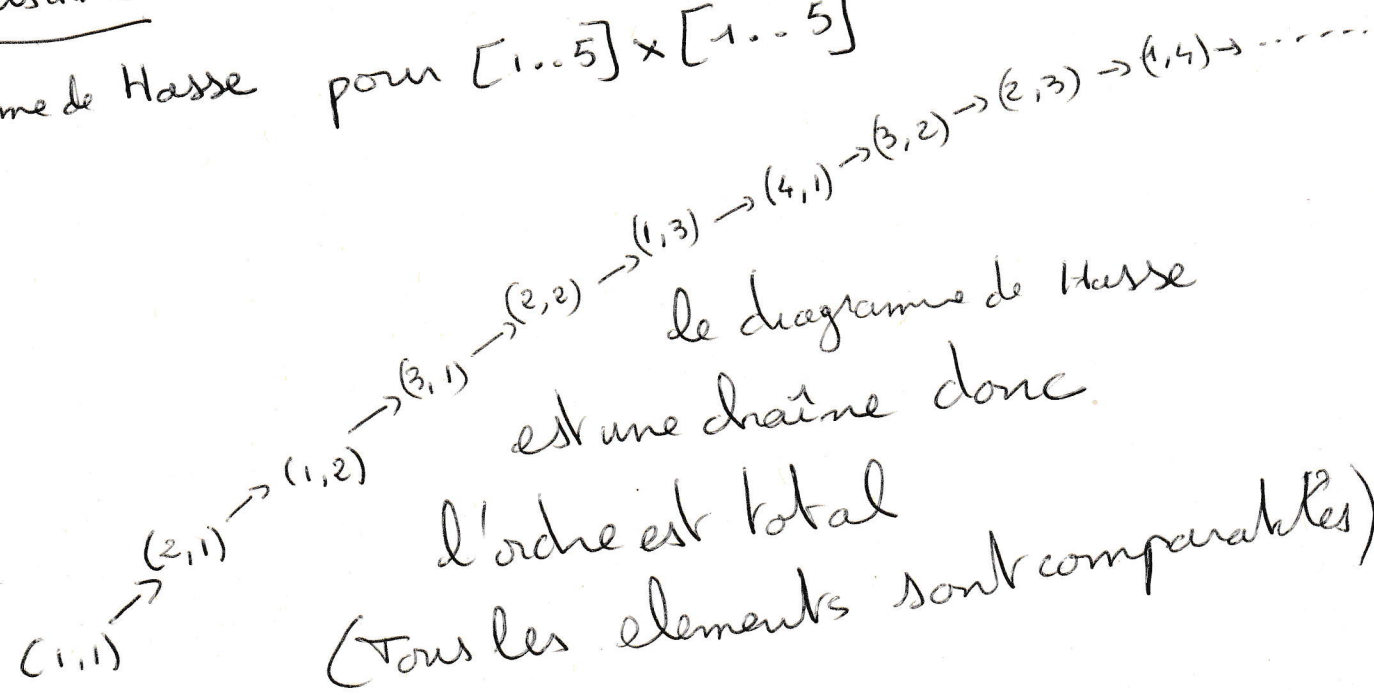 me de Hasse pour [1...5] × [1...5]
(1,1) → (2,1) → (1,2) → (3,1) → (2,2) → (1,3) → (4,1) → (3,2) → (2,3) → (1,4) → .......
le diagramme de Hasse
est une chaîne donc
l'ordre est total
(Tous les elements sont comparables)